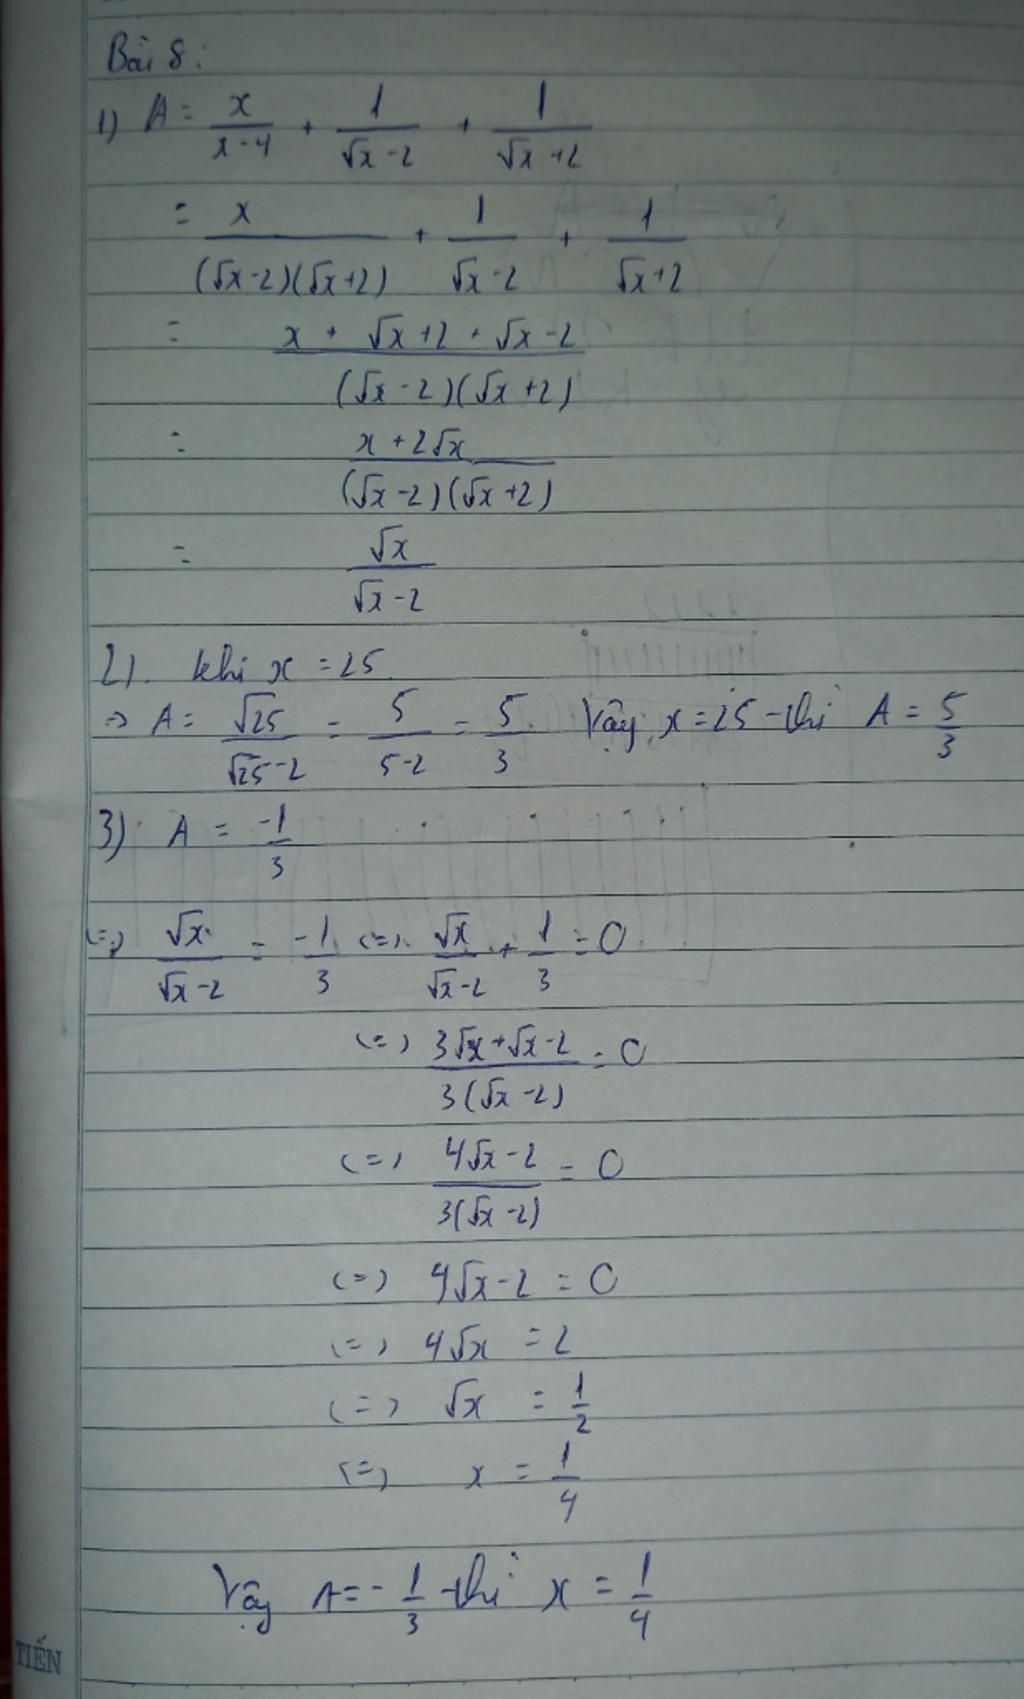 Bài 8:
1) A = x/(x-4) + 1/(√x-2) + 1/(√x+2)
= x/((√x-2)(√x+2)) + 1/(√x-2) + 1/(√x+2)
= (x + √x+2 + √x-2)/((√x-2)(√x+2))
= (x+2√x)/((√x-2)(√x+2))
= √x/(√x-2)
2). khi x = 25
=> A = √25/(√25-2) = 5/(5-2) = 5/3. Vậy x=25 thì A = 5/3
3) A = -1/3
(=) √x/(√x-2) = -1/3 (=) √x/(√x-2) + 1/3 = 0
(=) (3√x+√x-2)/(3(√x-2)) = 0
(=) (4√x-2)/(3(√x-2)) = 0
(=) 4√x-2 = 0
(=) 4√x = 2
(=) √x = 1/2
(=) x = 1/4
Vậy A = -1/3 thì x = 1/4
TIẾN